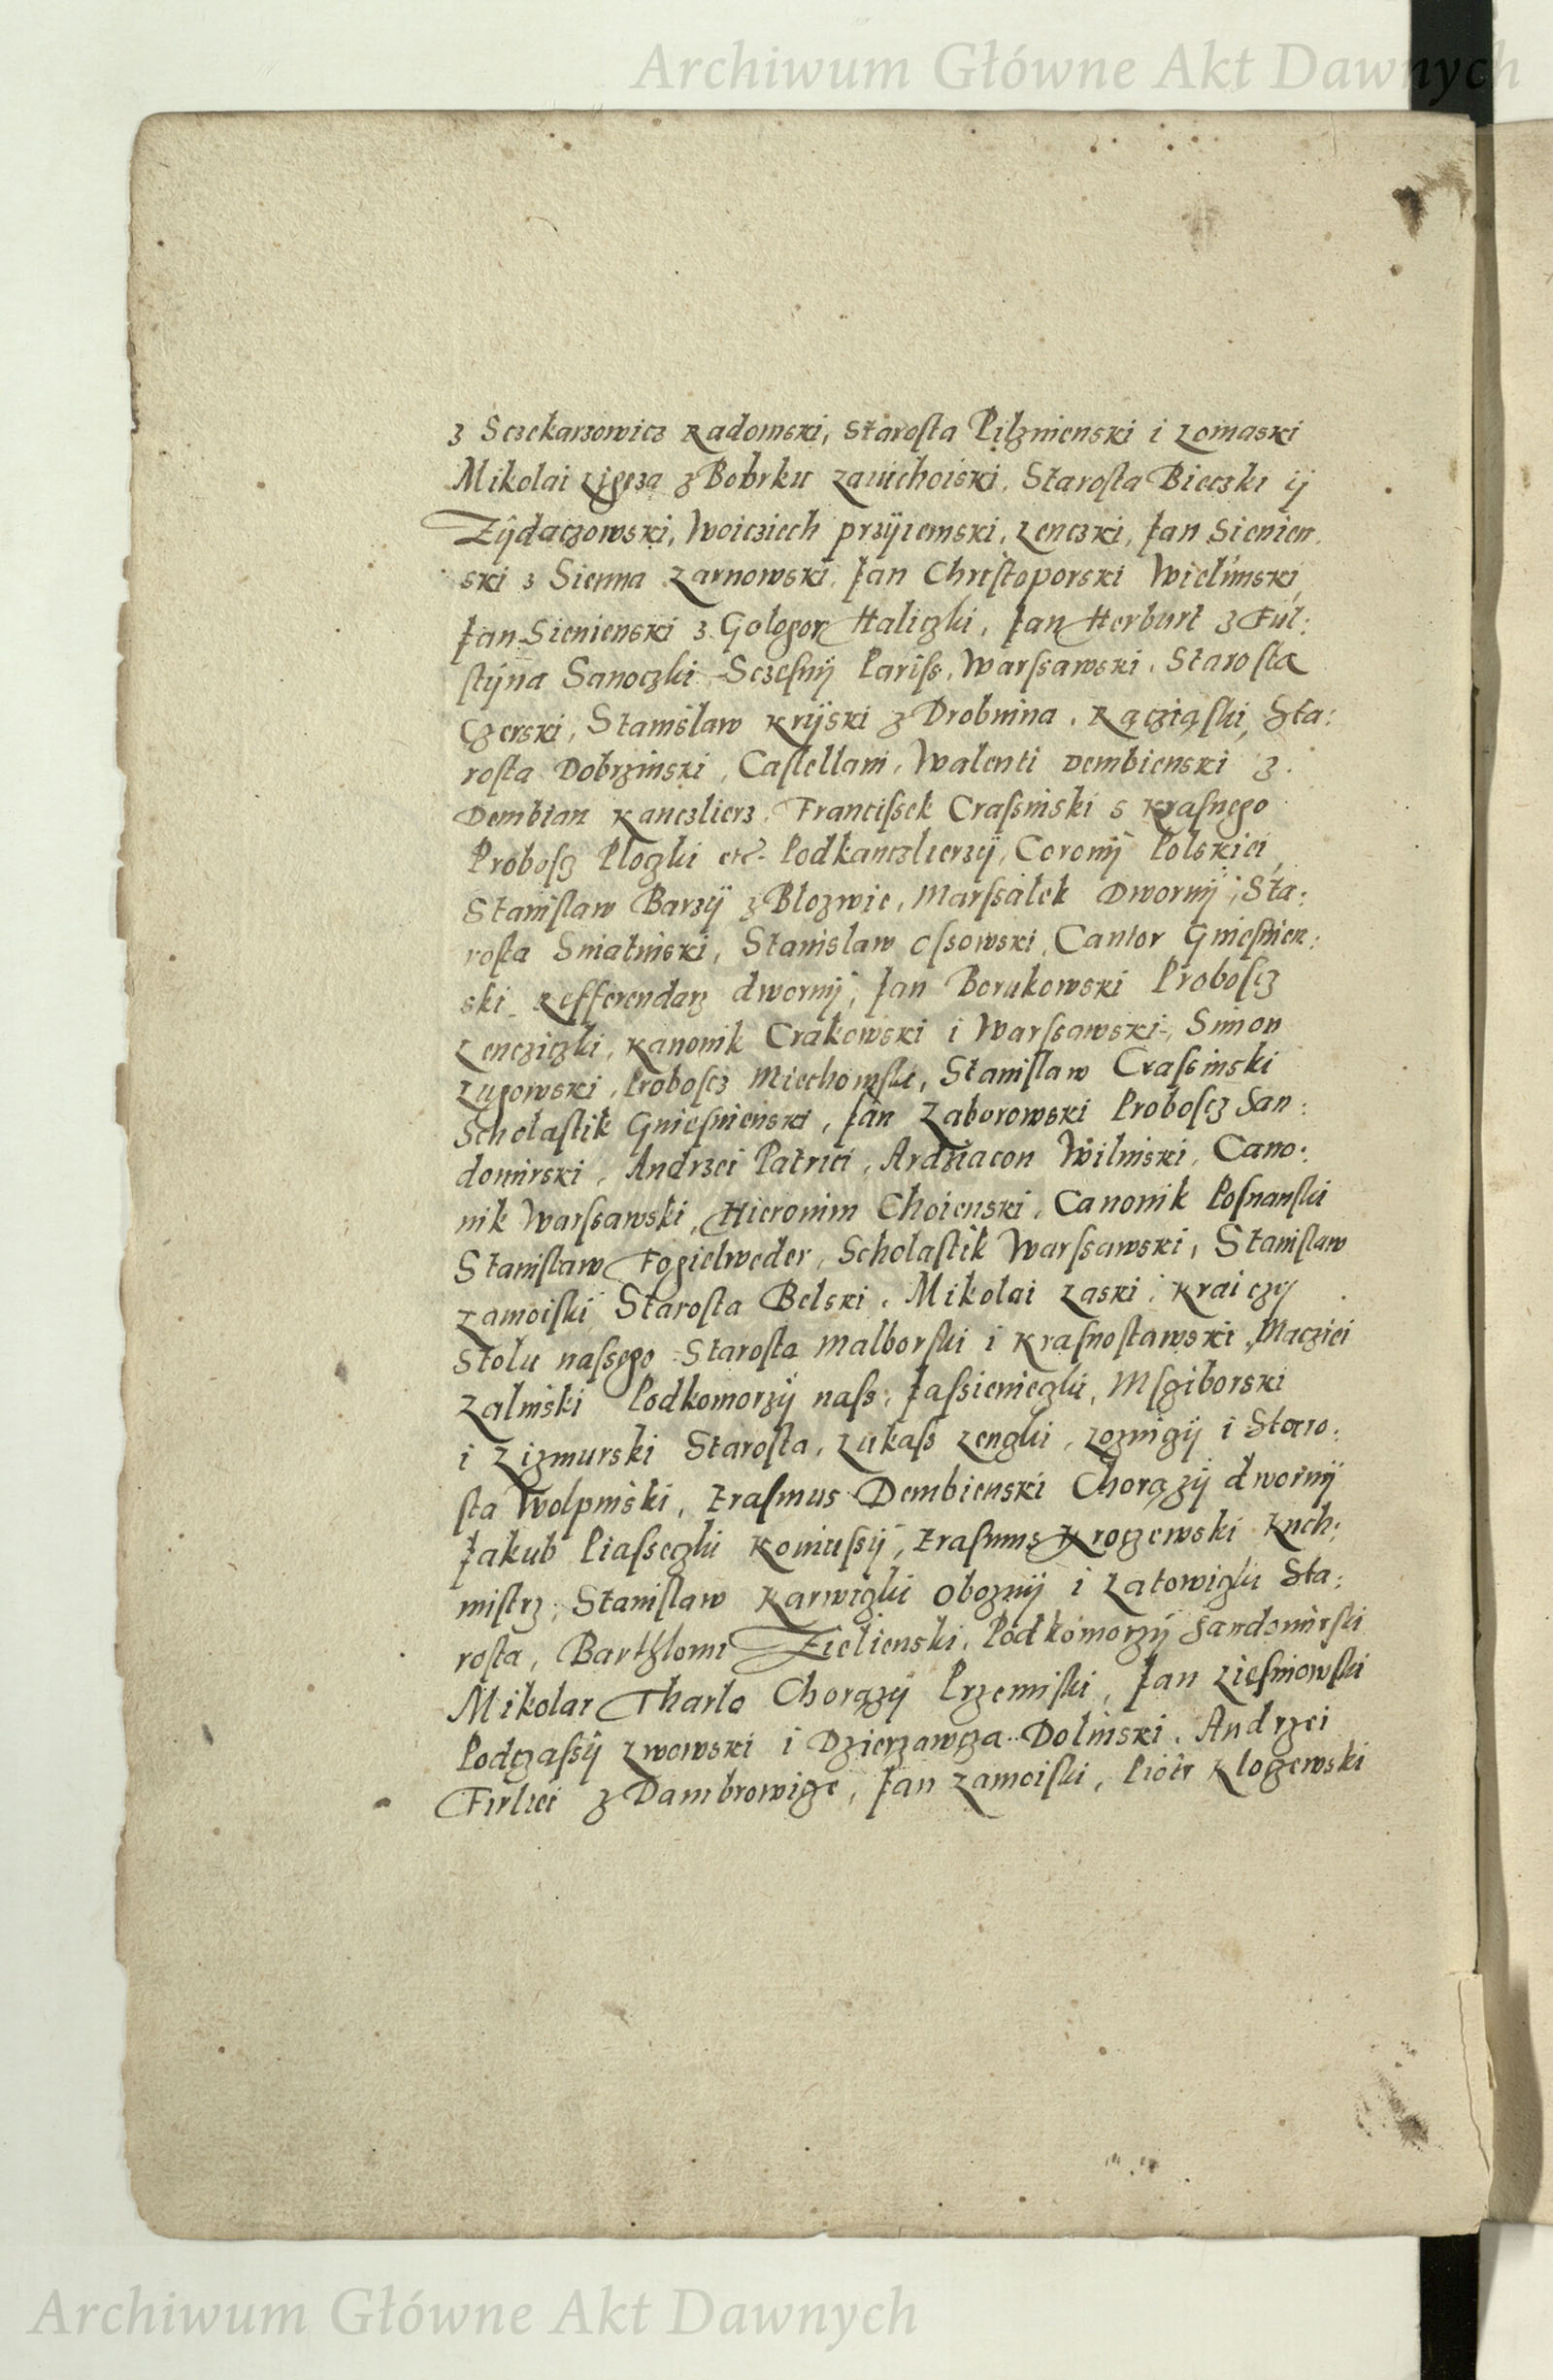 Archiwum Główne Akt Dawnych
з Sczekarzowicz Radomski, Starosta Pilznienski i Lomaski
Mikolai Ligęza z Bobrku Zawichoiski, Starosta Biecзki ij
Zijdaczowski, Woicziech Przijiemski, Lenczki, Jan Sienien
ski з Sienna Zarnowski, Jan Christoporski Wielunski,
Jan Sienienski з Gologor Haliczki, Jan Herburt з Ful:
stijna Sanoczki Sczesnij Pariss, Warssawski, Starosta
Czerski, Stanislaw Krijski z Drobnina, Rącziąski, Sta:
rosta Dobrzinski, Castellani, Walenti Dembienski z
Dembian Kanczlierz, Francissek Crassinski s Krasnego
Probosz Ploczki etc. Podkanczlierzij, Coronij Polskiei,
Stanislaw Barzij z Blozwie, Marssalek Dwornij, Sta:
rosta Sniatinski, Stanislaw Ossowski, Cantor Gniesnien:
ski Refferendarz dwornij, Jan Borukowski Proboscz
Lencziczki, Kanonik Crakowski i Warssawski, Simon
Lugowski, Proboscz Miechowski, Stanislaw Crassinski
Scholastik Gniesnienski, Jan Zaborowski Proboscz San:
domirski, Andrzei Patrici, Ardziacon Wilinski, Cano:
nik Warssawski, Hieronim Choienski, Canonik Posnanski
Stanislaw Fogielweder, Scholastik Warssawski, Stanislaw
Zamoiski Starosta Belski, Mikolai Laski, Kraiczy
Stolu nassego Starosta Malborski i Krasnostawski, Macziei
Zalinski Podkomorzij nass, Jassienieczki, Msciborski
i Zizmurski Starosta, Lukass Lenczki, Lozniczij i Staro:
sta Wolpinski, Erasmus Dembienski Chorązij dwornij
Jakub Piasseczki Koniussij, Erasmus Kroczewski Kuch:
mistrz, Stanislaw Karwiczki Oboznij i Latowiczki Sta:
rosta, Barthlomi Zielienski, Podkomorzij Sandomirski
Mikolai Tharlo Chorązij Przemiski, Jan Liesniowski
Podczassij Lwowski i Dzierzawcza Dolinski, Andrzei
Firliei z Dambrowicze, Jan Zamoiski, Piotr Kloczewski
Archiwum Główne Akt Dawnych